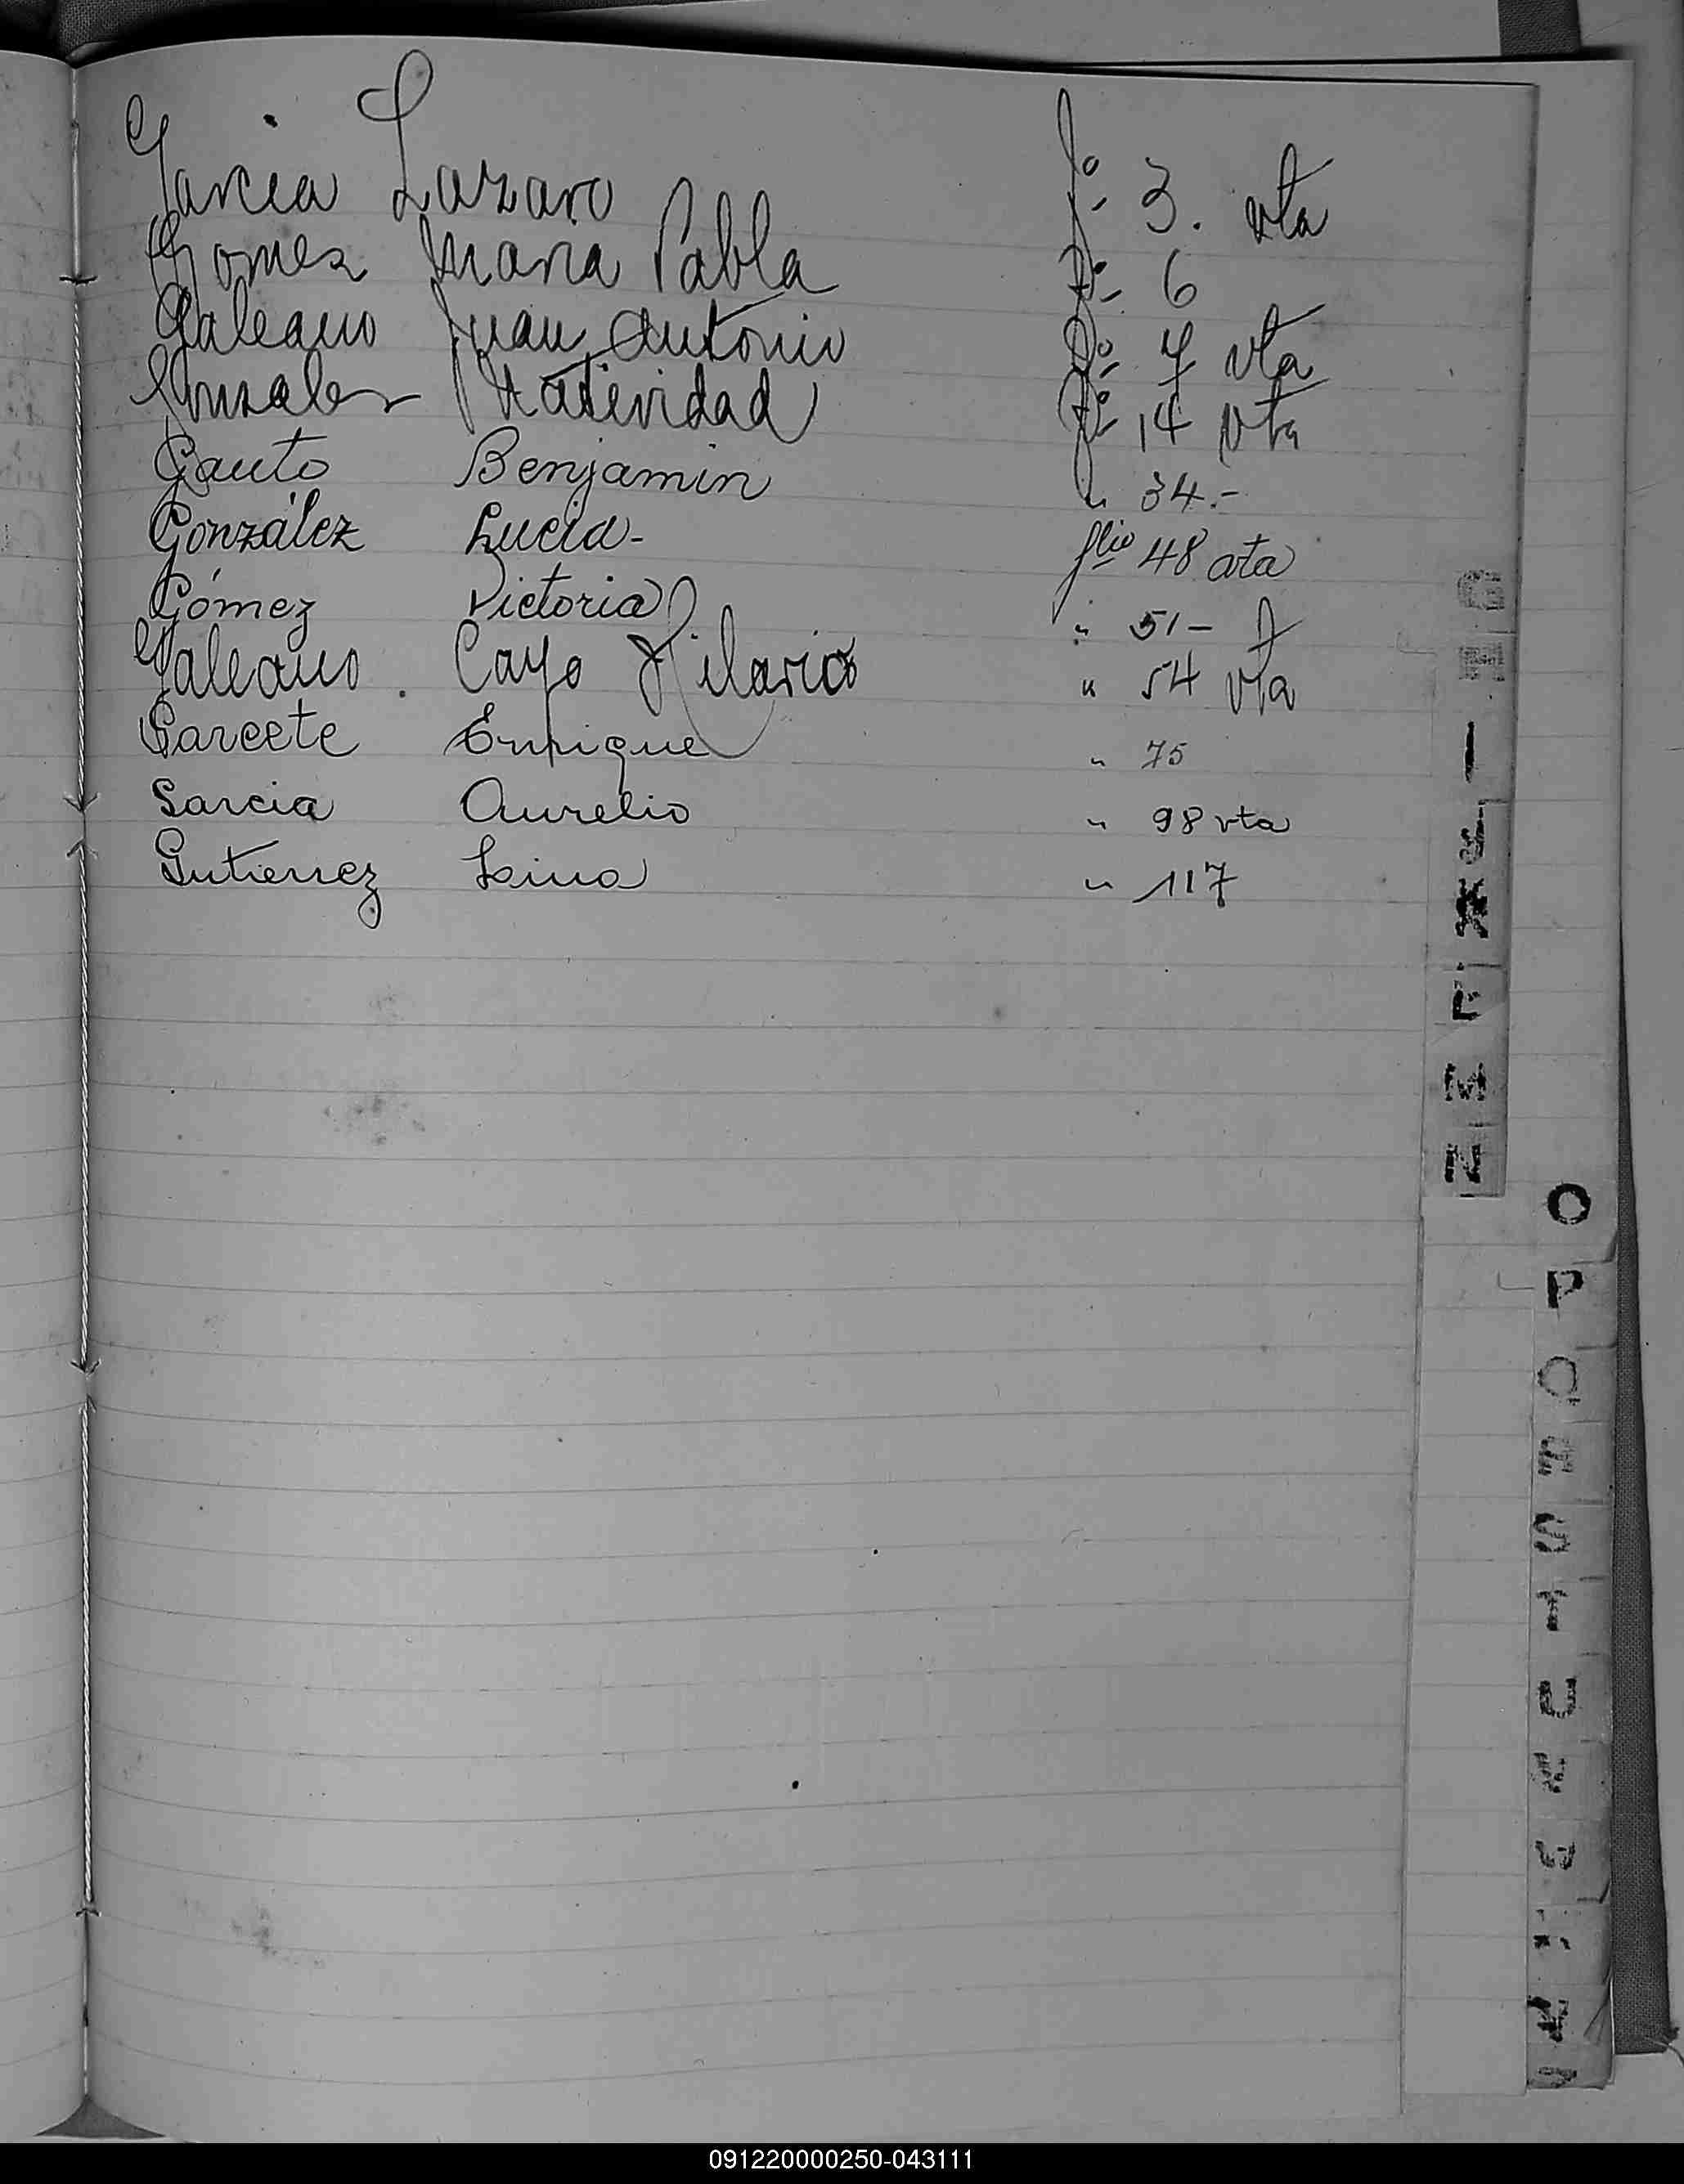 Garcia Lazaro fº 3. vta
Gomez Maria Pabla fº 6
Galeano Juan Antonio fº 7 vta
Gonzalez Natividad fº 14 vta
Gauto Benjamin " 34.-
González Lucia- flio 48 vta
Gómez Victoria " 51-
Galeano. Cayo Hilario " 54 vta
Garcete Enrique " 75
Garcia Aurelio " 98 vta
Gutierrez Lino " 117
G
H
I
M
N
O
P
Q
R
S
T
U
091220000250-043111